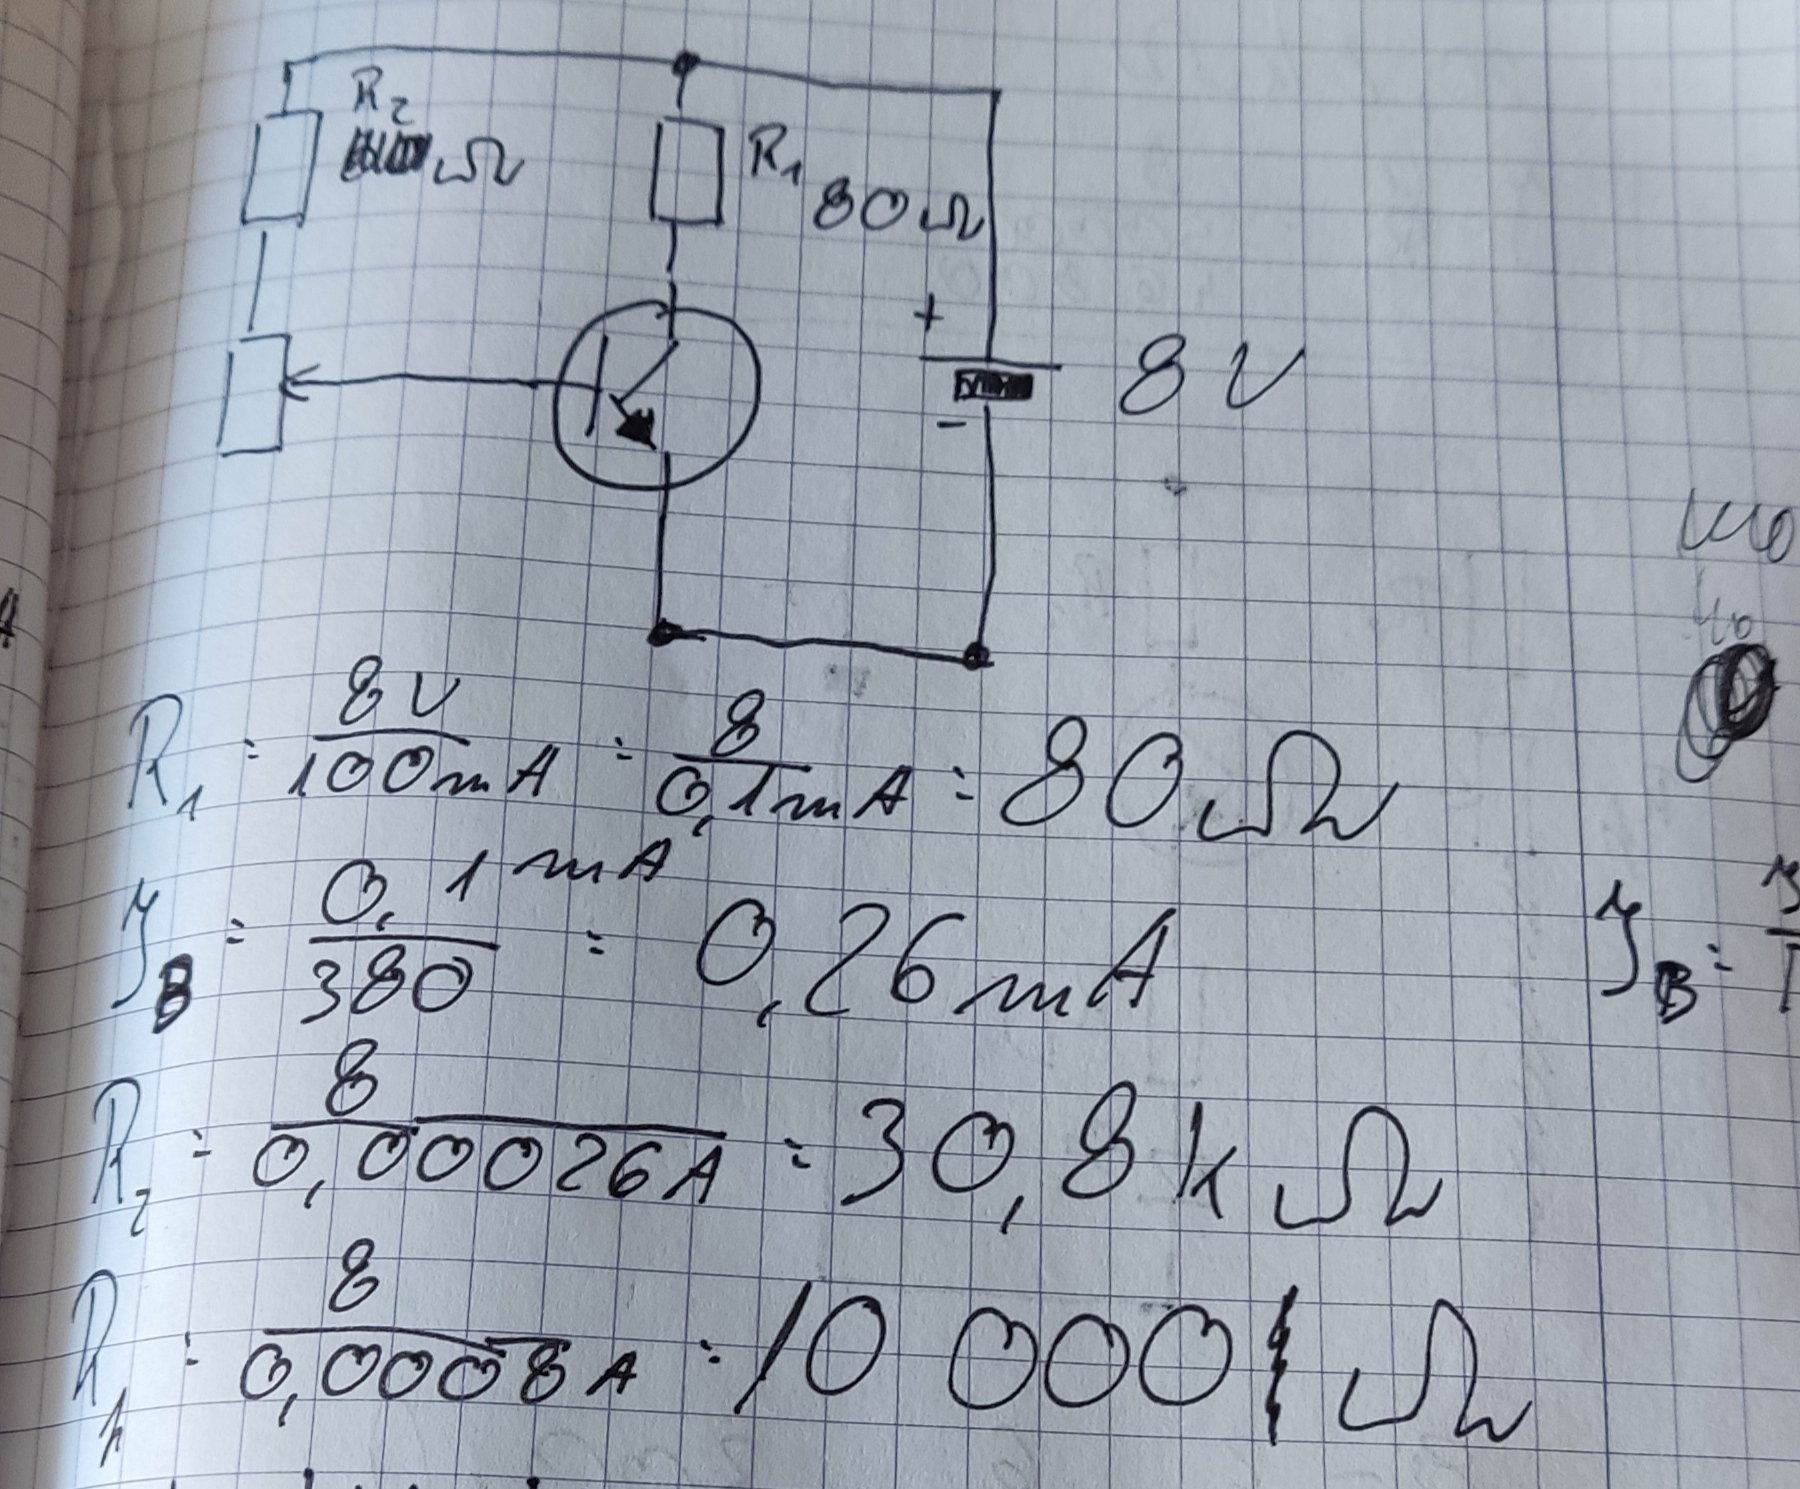 R₂
Ω
R₁
80Ω
+
8V
-
R₁ = 8V/100mA = 8/0,1mA = 80Ω
I_B = 0,1mA/380 = 0,26mA
I_B =
R₂ = 8/0,00026A = 30,8kΩ
R = 8/0,0008A = 10 000 Ω